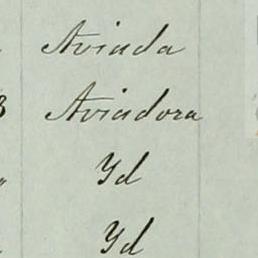 Aviada
Aviadora
Yd
Yd